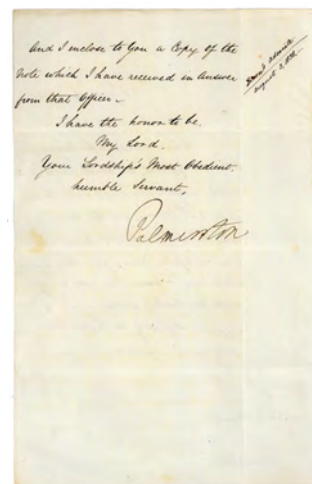 And I inclose to you a Copy of the
Note which I have received in answer
from that Officer.
I have the honor to be.
My Lord.
Your Lordship's Most Obedient.
humble Servant,
Palmerston
August